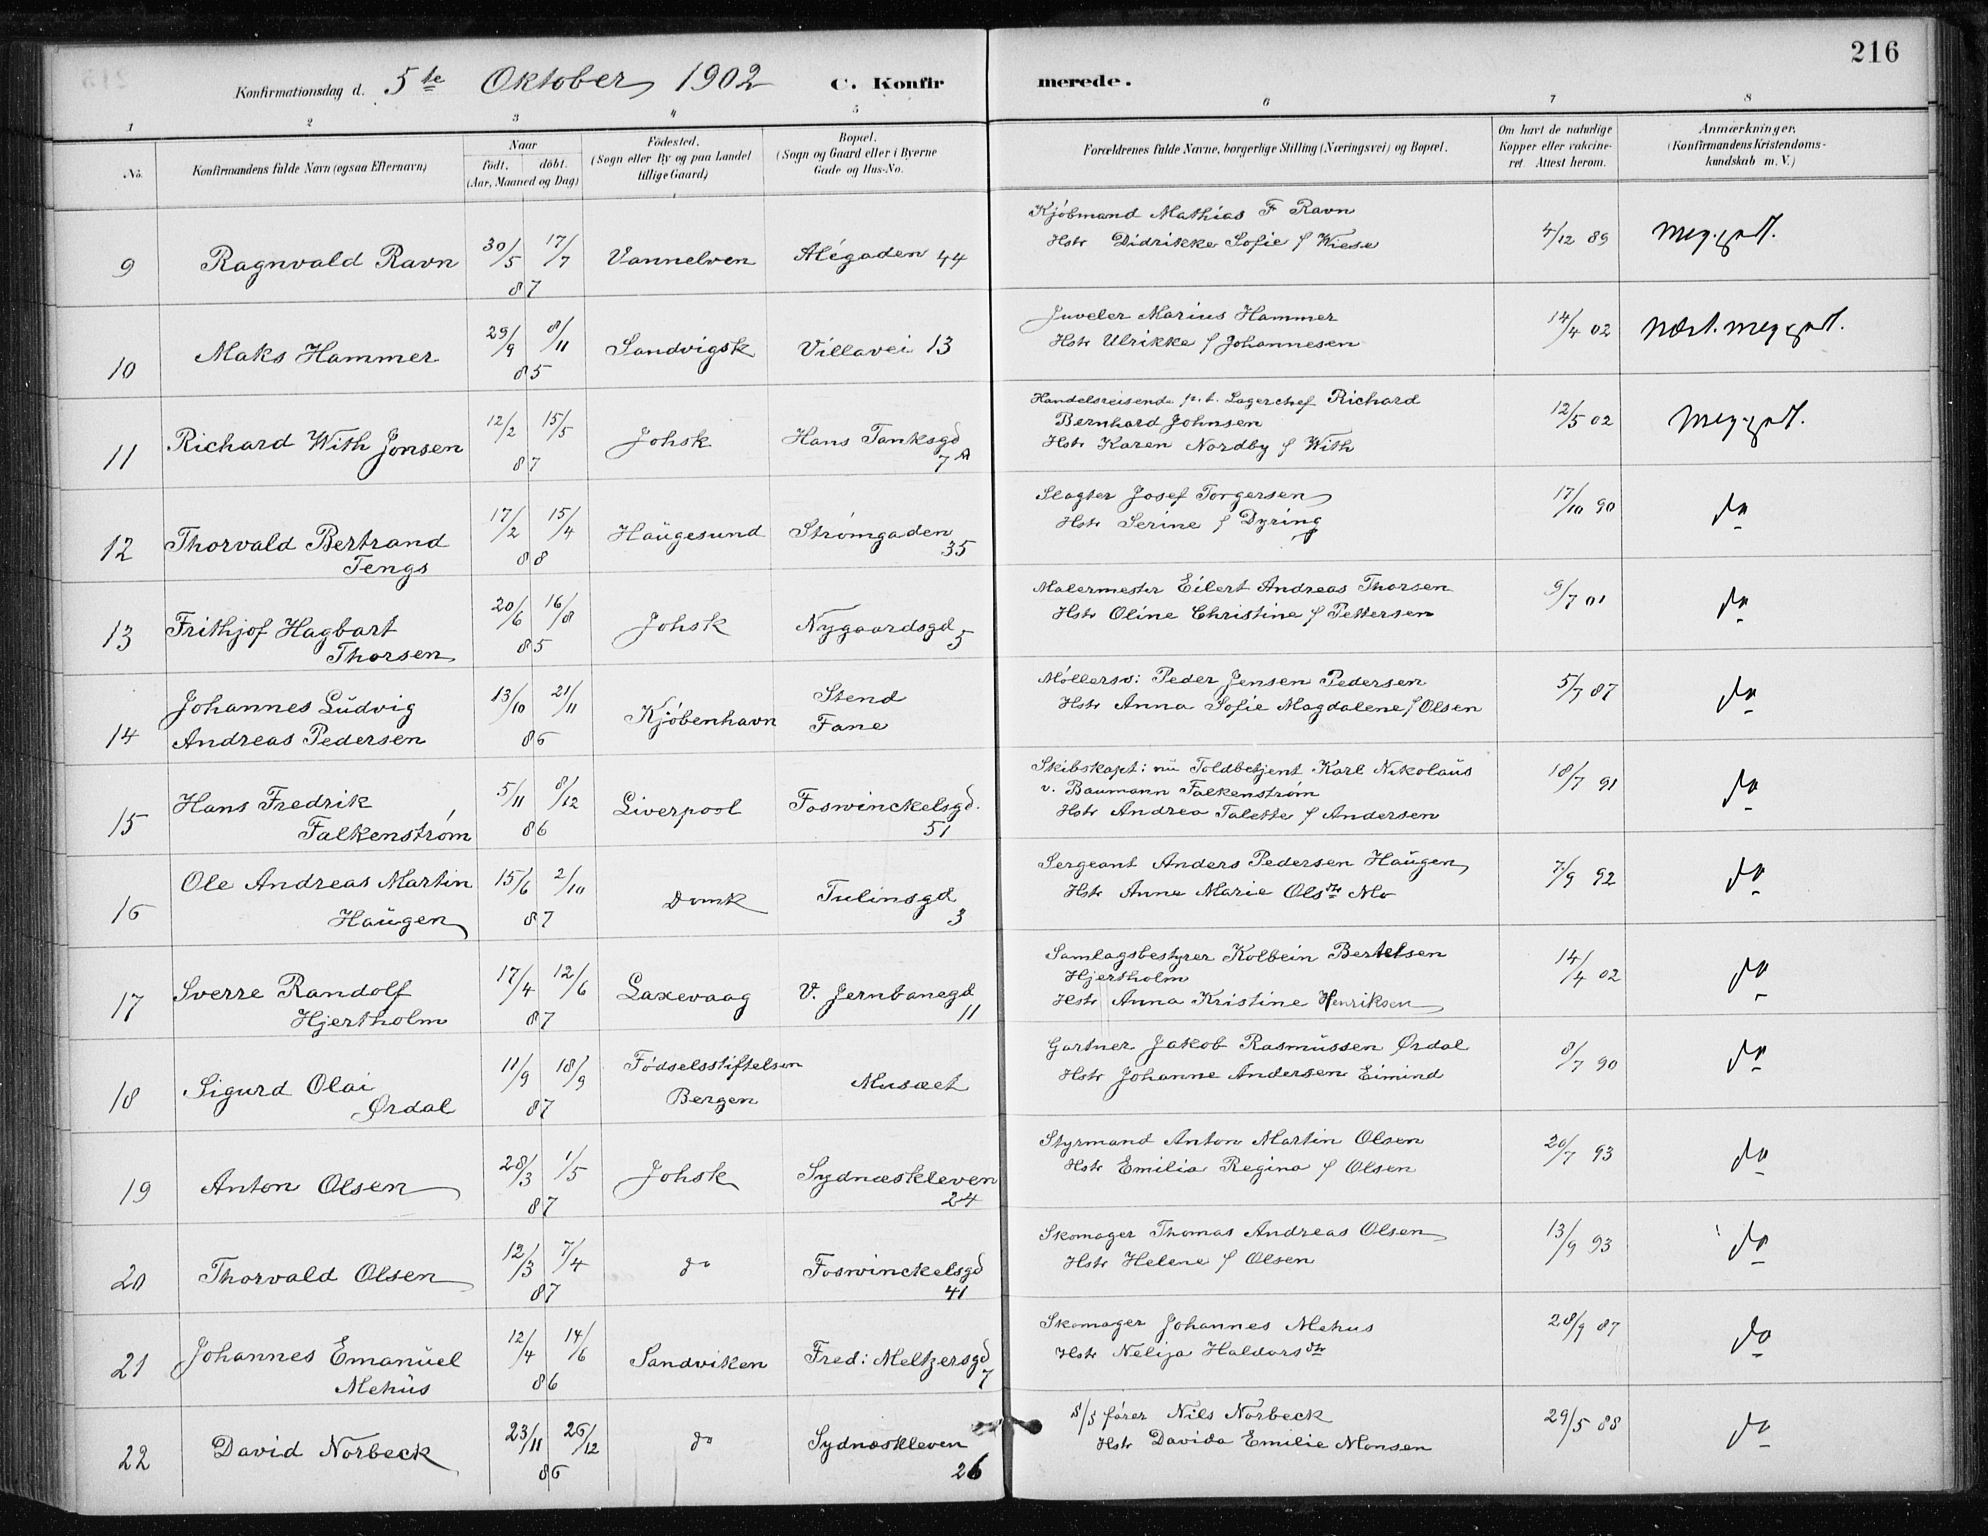 216
Konfirmationsdag d. 5te Oktober 1902 C. Konfirmerede.
1 2 3 4 5 6 7 8
No. Konfirmandens fulde Navn (ogsaa Efternavn) Naar født. døbt. (Aar, Maaned og Dag) Födested. (Sogn eller By og paa Landet tillige Gaard) Bopæl. (Sogn og Gaard eller i Byerne Gade og Hus-No. Forældrenes fulde Navne, borgerlige Stilling (Næringsvei) og Bopæl. Om havt de naturlige Kopper eller vakcineret. Attest herom. Anmærkninger. (Konfirmandens Kristendomskundskab m. V.)
9 Ragnvald Ravn 30/5 17/7 87 Vannelven Alégaden 44 Kjøbmand Mathias F Ravn
Hstr Didrikke Sofie f Wiese 4/12 89 Meg. godt.
10 Maks Hammer 29/9 8/11 85 Sandvigsk Villavei 13 Juveler Marius Hammer
Hstr Ulrikke f Johannesen 14/4 02 Næst. meg godt.
11 Richard With Jonsen 12/2 15/5 87 Johsk Hans Tanksgd 7A Handelsreisende p. t. Lagerchef Richard
Bernhard Johnsen
Hstr Karen Nordby f With 12/5 02 Meg. godt.
12 Thorvald Bertrand
Tengs 17/2 15/4 88 Haugesund Strømgaden 35 Slagter Josef Torgersen
Hstr Serine f Dyring 17/10 90 do
13 Frithjof Hagbart
Thorsen 20/6 16/8 85 Johsk Nygaardsgd 5 Malermester Eilert Andreas Thorsen
Hstr Oline Christine f Pettersen 9/7 01 do
14 Johannes Ludvig
Andreas Pedersen 13/10 21/11 86 Kjøbenhavn Stend
Fane Møllersv: Peder Jensen Pedersen
Hstr Anna Sofie Magdalene f Olsen 5/7 87 do
15 Hans Fredrik
Falkenstrøm 5/11 8/12 86 Liverpool Foswinckelsgd. 51 Skibskapt: nu Toldbetjent Karl Nikolaus
v. Baumann Falkenstrøm
Hstr Andrea Talette f Andersen 18/7 91 do
16 Ole Andreas Martin
Haugen 15/6 2/10 87 Domk Tulinsgd 3 Sergeant Anders Pedersen Haugen
Hstr Anne Marie Olsdtr Mo 7/9 92 do
17 Sverre Randolf
Hjertholm 17/4 12/6 87 Laxevaag V. Jernbanegd 11 Samlagsbestyrer Kolbein Bertelsen
Hjertholm
Hstr Anna Kristine Henriksen 14/4 02 do
18 Sigurd Olai
Ørdal 11/9 18/9 87 Fødselsstiftelsen
Bergen Musæet Gartner Jakob Rasmussen Ørdal
Hstr Johanne Andersen Eimind 8/7 90 do
19 Anton Olsen 28/3 1/5 87 Johsk Sydnæskleven 24 Styrmand Anton Martin Olsen
Hstr Emilia Regina f Olsen 20/7 93 do
20 Thorvald Olsen 12/3 7/4 87 do Foswinckelsgd 41 Skomager Thomas Andreas Olsen
Hstr Helene f Olsen 13/9 93 do
21 Johannes Emanuel
Mehus 12/4 14/6 86 Sandviken Fred: Meltzersgd 7 Skomager Johannes Mehus
Hstr Nelija Haldorsdtr 28/9 87 do
22 David Norbeck 23/11 26/12 86 do Sydnæskleven 26 S/S fører Nils Norbeck
Hstr Davida Emilie Monsen 29/5 88 do